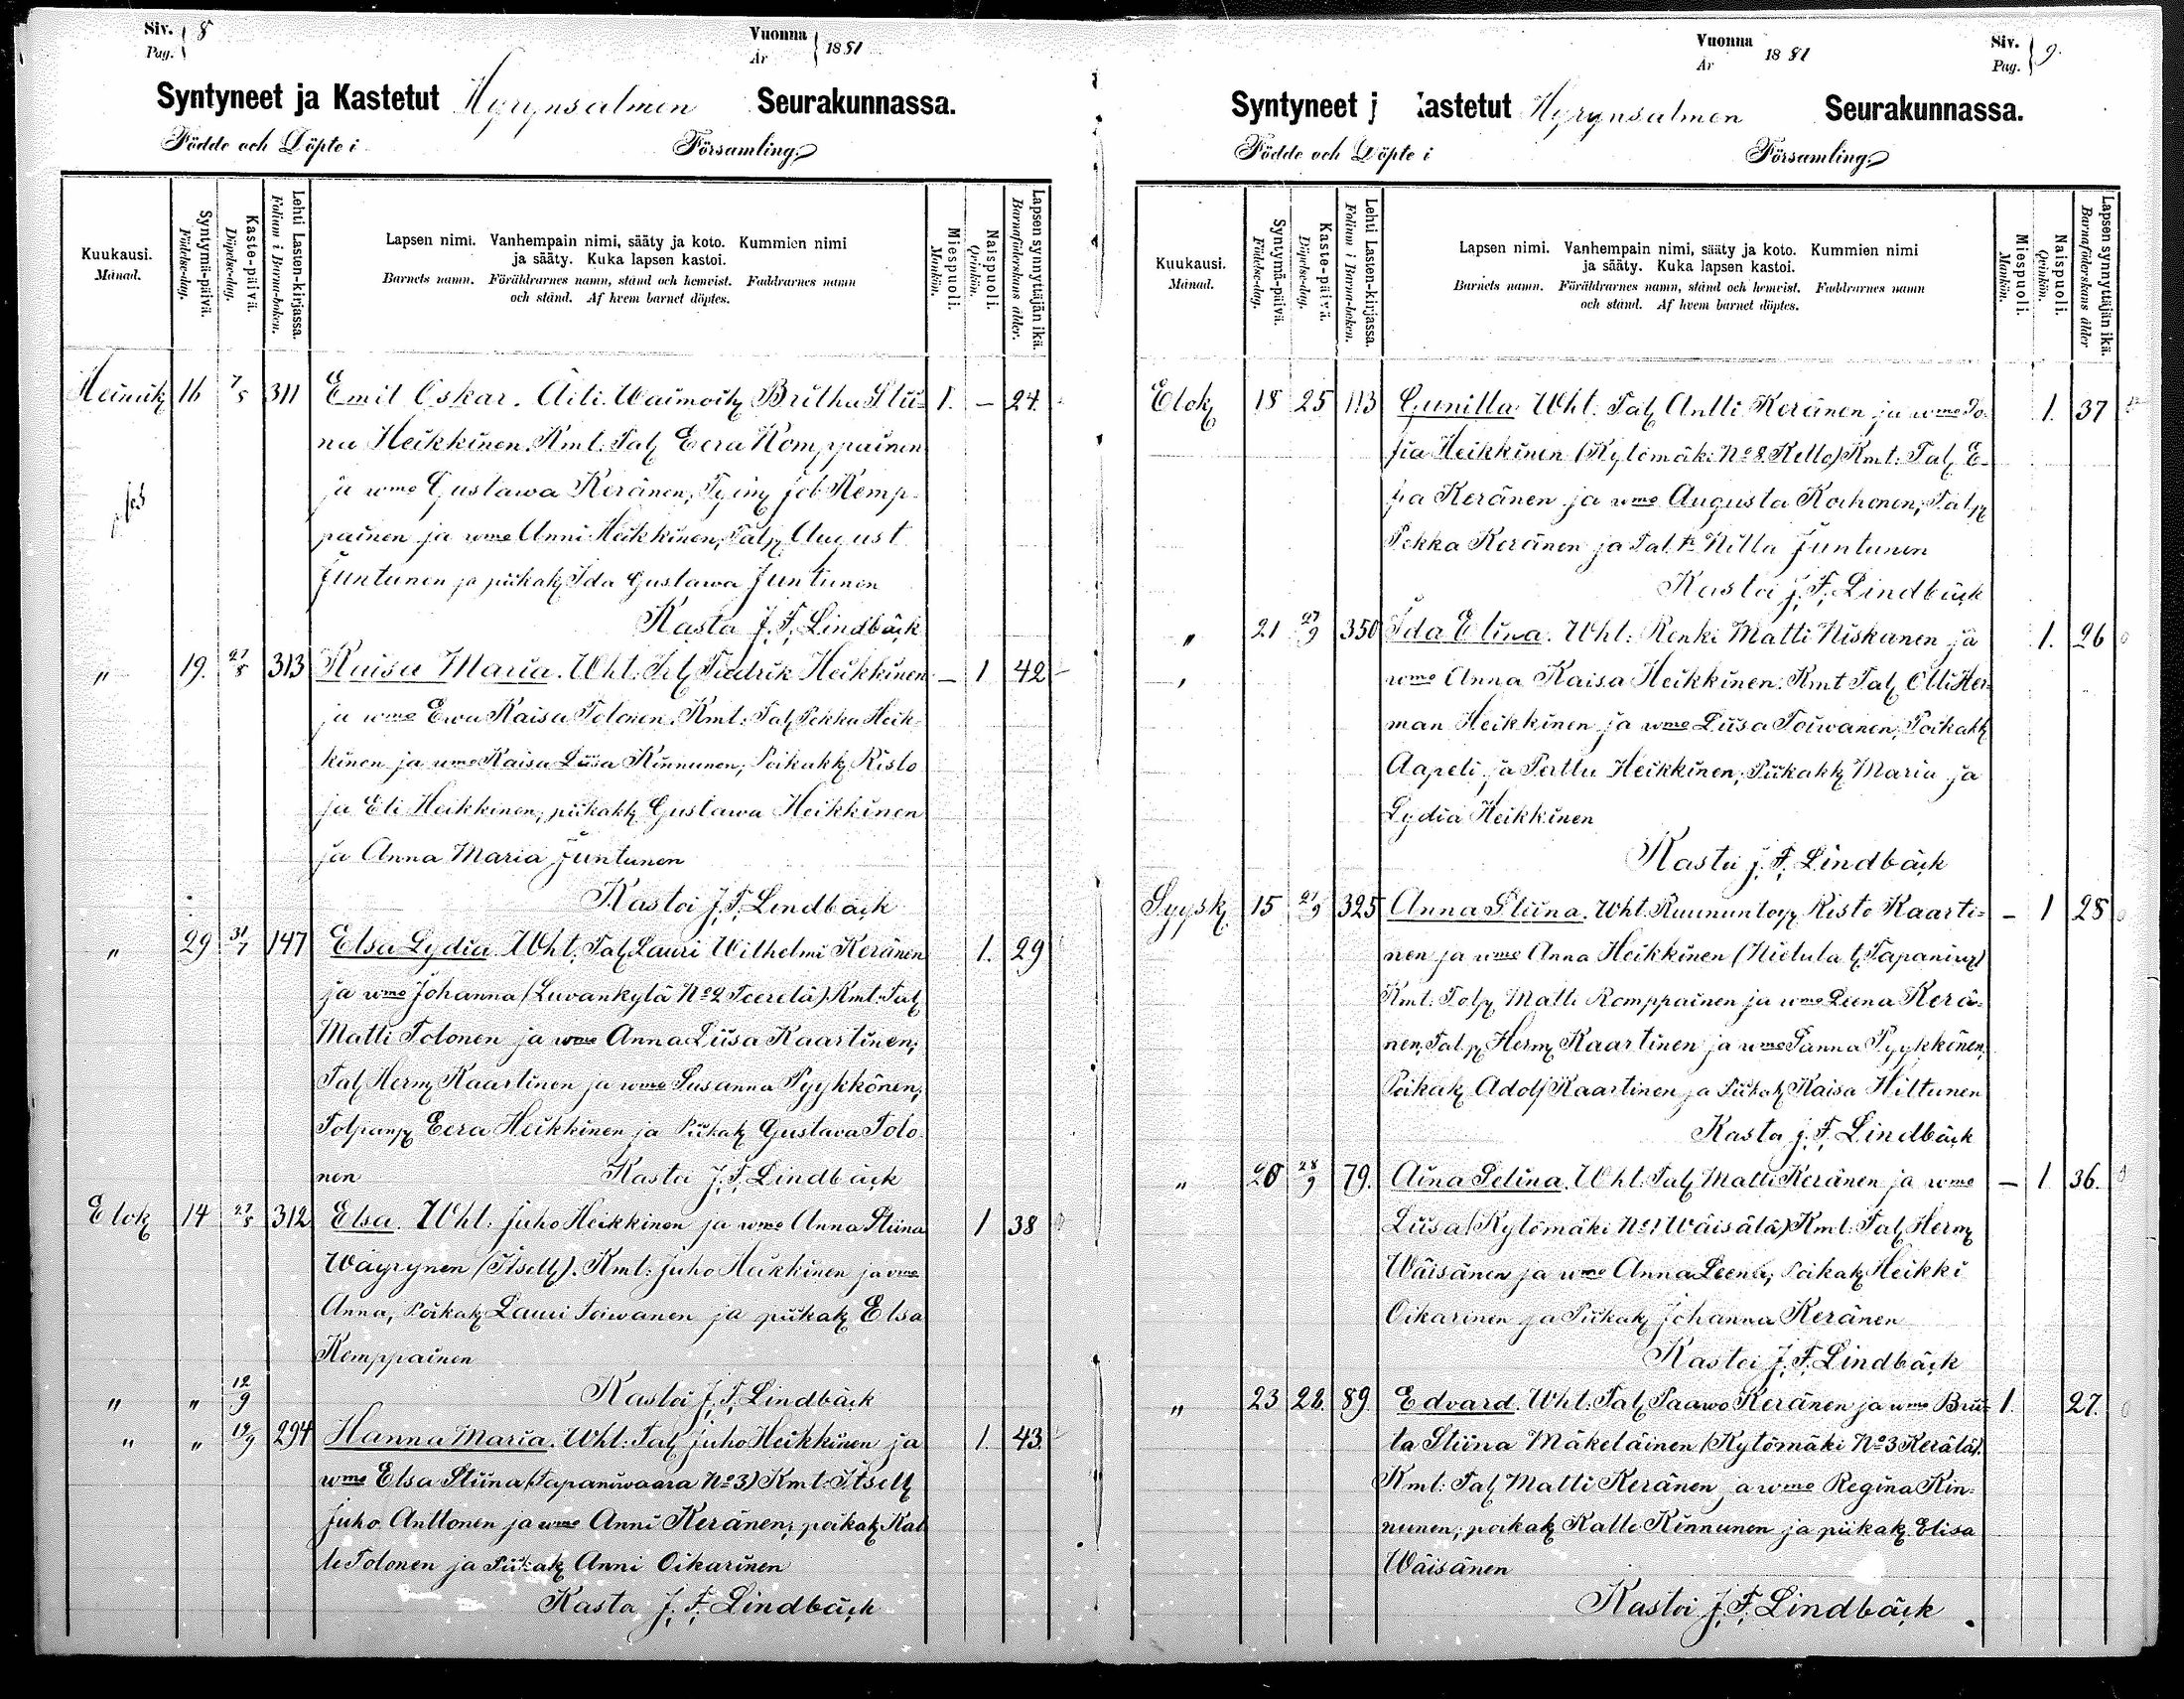 Siv. 8
Pag.
Vuonna 1881
År
Syntyneet ja Kastetut Hyrynsalmen Seurakunnassa.
Födde och Döpte i Församling.
Kuukausi.
Månad.
Syntymä-päivä.
Födelse-dag.
Kaste-päivä.
Döpelse-dag.
Lehti Lasten-kirjassa.
Folium i Barna-boken.
Lapsen nimi. Vanhempain nimi, sääty ja koto. Kummien nimi
ja sääty. Kuka lapsen kastoi.
Barnets namn. Föräldrarnes namn, stånd och hemvist. Faddrarnes namn
och stånd. Af hvem barnet döptes.
Miespuoli.
Mankön.
Naispuoli.
Qvinkön.
Lapsen synnyttäjän ikä.
Barnaföderskans ålder.
Heinäk 16 7/8 311 Emil Oskar. Äiti. Waimoih Britha Stii- 1. — 24.
na Heikkinen. Kmt: Tal Eera Komppainen
ja wmo Gustawa Keränen, Job Kemp-
painen ja wmo Anni Heikkinen, Talp August
Juntunen ja piikak Ida Gustawa Juntunen
Kasto J. F. Lindbäck
" 19. 21/8 313 Kaisa Maria. Wht: Fredrik Heikkinen — 1 42
ja wmo Ewa Kaisa Tolonen. Kmt: Tal Pekka Heik-
kinen ja wmo Kaisa Liisa Kinnunen; Poikakk Risto
ja Eli Heikkinen; piikakk Gustawa Heikkinen
ja Anna Maria Juntunen
Kastoi J. F. Lindbäck
" 29 31/7 147 Elsa Lydia. Wht. Tal Lauri Wilhelmi Keränen 1. 29
ja wmo Johanna (Luvankylä No 2 Teerelä) Kmt: Tal
Matti Tolonen ja wmo Anna Liisa Kaartinen;
Tal Herm Kaartinen ja wmo Susanna Pyykkönen;
Eera Heikkinen ja Piikak Gustava Tolo-
nen Kastoi J. F. Lindbäck
Elok 14 27/8 312 Elsa. Wht: Juho Heikkinen ja wmo Anna Stiina 1 38
Wäyrynen (Itsell). Kmt: Juho Heikkinen ja wmo
Anna, Poikak Lauri Toiwanen ja piikak Elsa
Kemppainen
" " 12/9 Kastoi J. F. Lindbäck
" " 12/9 294 Hanna Maria. Wht: Tal Juho Heikkinen ja 1. 43.
wmo Elsa Stiina (Tapaniwaara No 3) Kmt: Itsell
Juho Anttonen ja wmo Anni Keränen; poikak Kal-
le Tolonen ja Piikak Anni Oikarinen
Kasto J. F. Lindbäck
Vuonna 1881
År
Siv. 9.
Pag.
Syntyneet j astetut Hyrynsalmen Seurakunnassa.
Födde och Döpte i Församling.
Kuukausi.
Månad.
Syntymä-päivä.
Födelse-dag.
Kaste-päivä.
Döpelse-dag.
Lehti Lasten-kirjassa.
Folium i Barna-boken.
Lapsen nimi. Vanhempain nimi, sääty ja koto. Kummien nimi
ja sääty. Kuka lapsen kastoi.
Barnets namn. Föräldrarnes namn, stånd och hemvist. Faddrarnes namn
och stånd. Af hvem barnet döptes.
Miespuoli.
Mankön.
Naispuoli.
Qvinkön.
Lapsen synnyttäjän ikä.
Barnaföderskans ålder
Elok 18 25 113 Gunilla Wht. Tal Antti Keränen ja wmo So- 1. 37
fia Heikkinen (Kytömäki No 8. Kello) Kmt: Tal E-
Keränen ja wmo Augusta Korhonen; Talp
Pekka Keränen ja Tal.tr Nilla Juntunen
Kastoi J. F. Lindbäck
" 21 27/9 350 Ida Elina. Wht: Renki Matti Niskanen ja 1. 26
wmo Anna Kaisa Heikkinen. Kmt Tal Olli Her-
man Heikkinen ja wmo Liisa Toiwanen; Poikakk
Aapeli ja Perttu Heikkinen; Piikakk Maria ja
Lydia Heikkinen
Kastoi J. F. Lindbäck
Syysk. 15 27/9 325 Anna Stiina. Wht. Ruununtorp Risto Kaarti- — 1 28
nen ja wmo Anna Heikkinen (Nielula
Kmt: Talp Matti Romppainen ja wmo Leena Kerä-
nen; Tal.p Herm Kaartinen ja wmo Sanna Pyykkönen;
Poikak Adolf Kaartinen ja Piikak Kaisa Hiltunen
Kasto J. F. Lindbäck
" 20 28/9 79. Aina Selina. Wht. Tal Matti Keränen ja wmo — 1. 36.
Liisa (Kytömäki No 1 Wäisälä) Kmt: Tal Herm
Wäisänen ja wmo Anna Leena; Poikak Heikki
Oikarinen ja Piikak Johanna Keränen
Kastoi J. F. Lindbäck
" 23 28. 89. Edvard. Wht: Tal Paawo Keränen ja wmo Brii- 1. 27.
ta Stiina Mäkeläinen (Kytömäki No 3 Kerälä).
Kmt: Tal Matti Keränen ja wmo Regina Kin-
nunen; poikak Kalle Kinnunen ja piikak Elisa
Wäisänen
Kastoi J. F. Lindbäck